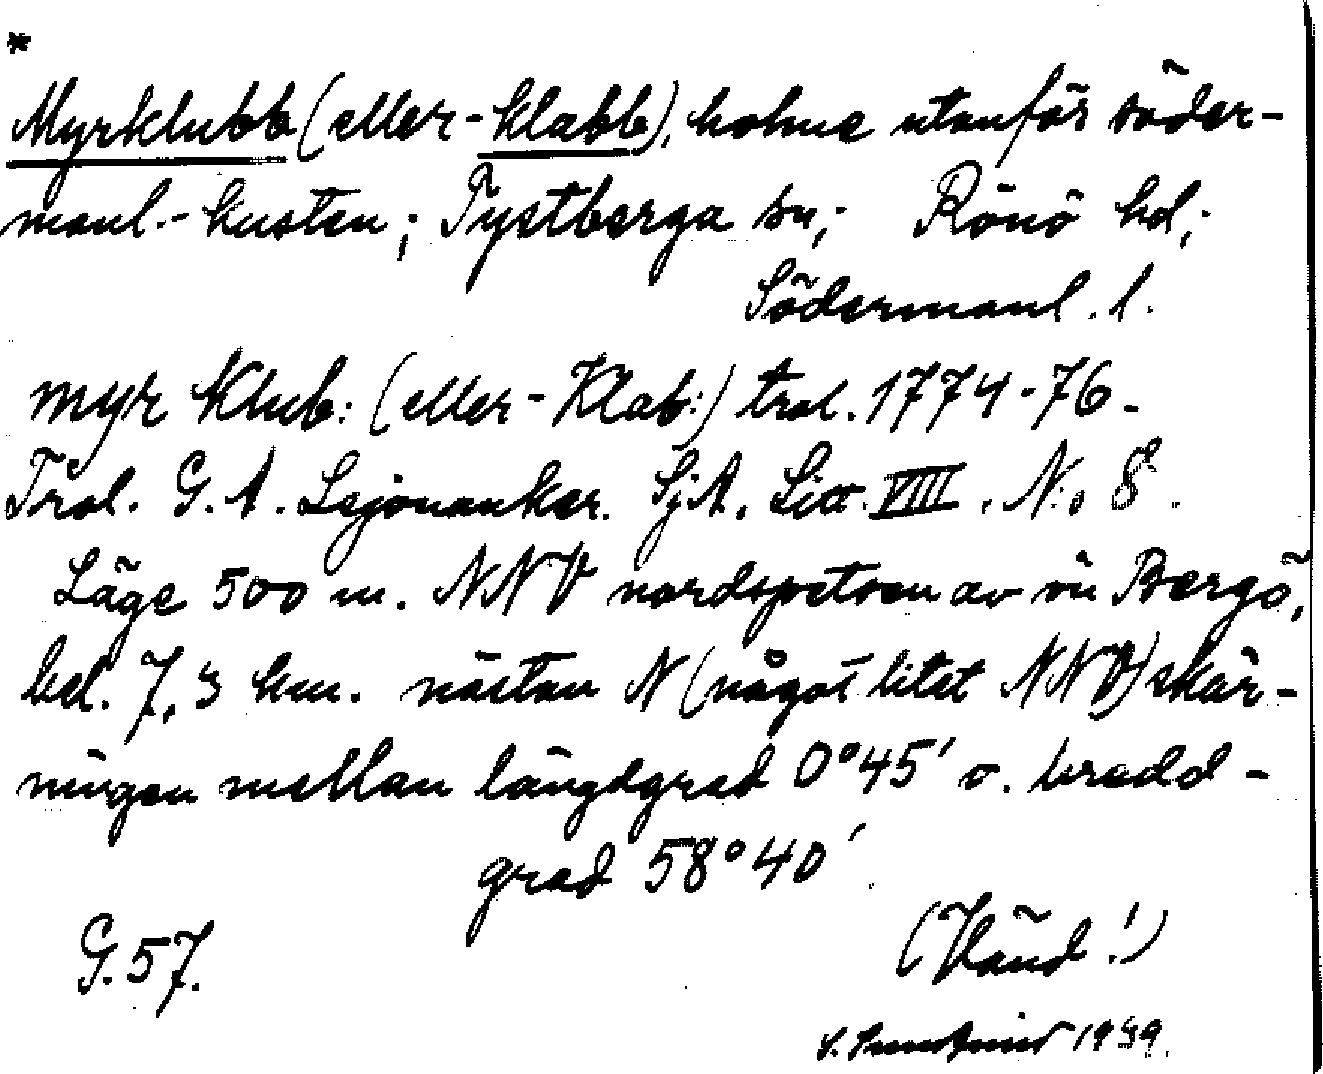 *
Myrklubb (eller -klabb), holme utanför söder-
manl.-kusten; Tystberga sn; Rönö hd;
Södermanl. l.
myr Klub: (eller - Klab:) trol. 1774-76.
Trol. G. A. Lejonanker. SjA. Litt. VIII. N:o 8.
Läge 500 m. NNV nordspetsen av ön Bergö,
bel. 7,3 km. nästan N (något litet NNV) skär-
ningen mellan längdgrad 0°45' o. bredd-
grad 58°40'
G. 57.
(Vänd!)
1939.